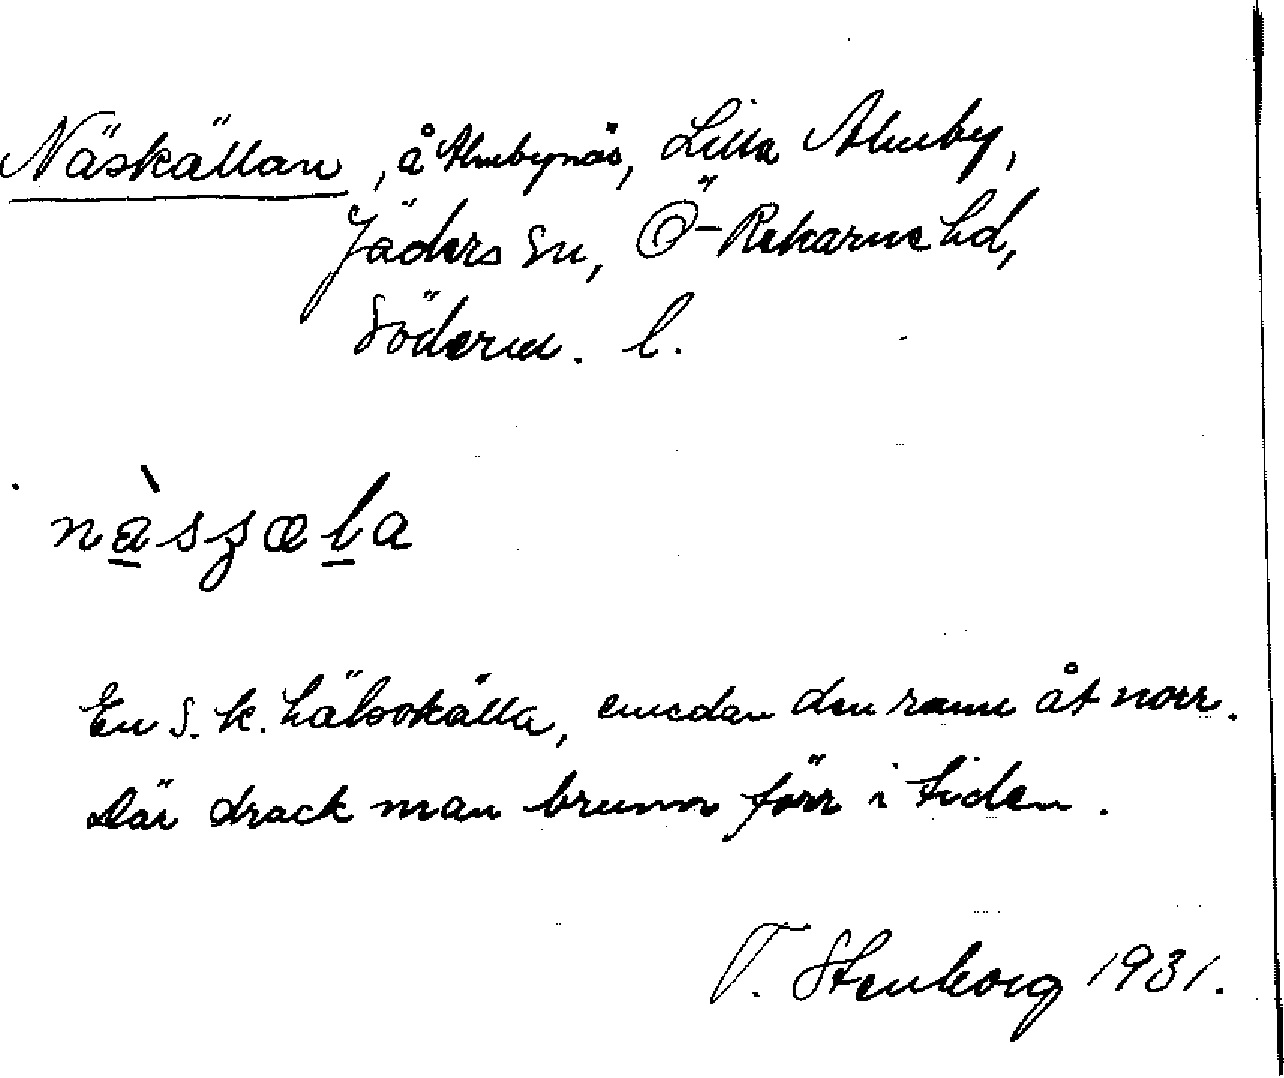 Näskällan, å Almbynäs, Lilla Almby,
Jäders sn, Ö-Rekarne hd,
Söderm. l.
nàszæla
En s. k. hälsokälla, emedan den rann åt norr.
Där drack man brunn förr i tiden.
T. Stenborg 1931.